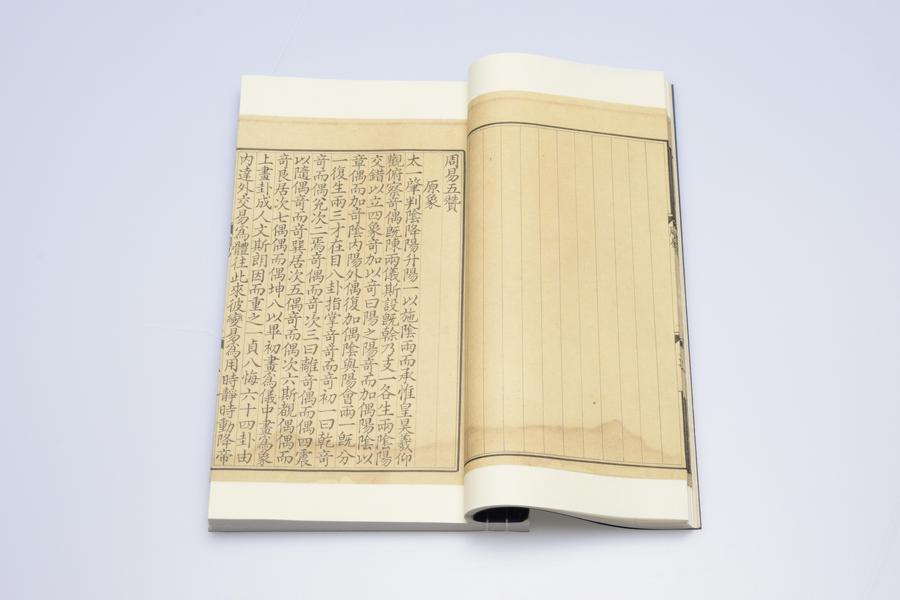 周易五贊
原象
太一肇判陰降陽升陽一以施陰兩而承惟皇昊羲仰
觀俯察奇偶既陳兩儀斯設既榦乃支一各生兩陰陽
交錯以立四象奇加以奇曰陽之陽奇而加偶陽陰以
章偶而加奇陰內陽外偶復加偶陰與陽會兩一既分
一復生兩三才在目八卦指掌奇奇而奇初一曰乾奇
奇而偶兌次二焉奇偶而奇次三曰離奇偶而偶四震
以隨偶奇而奇巽居次五偶奇而偶坎六斯覩偶偶而
奇艮居次七偶偶而偶坤八以畢初畫為儀中畫為象
上畫卦成人文斯朗因而重之一貞八悔六十四卦由
內達外交易為體往此來彼變易為用時靜時動降帝